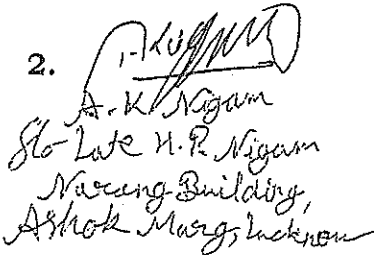 2.
A.K. Nigam
S/o Late H.P. Nigam
Narang Building,
Ashok Marg, Lucknow